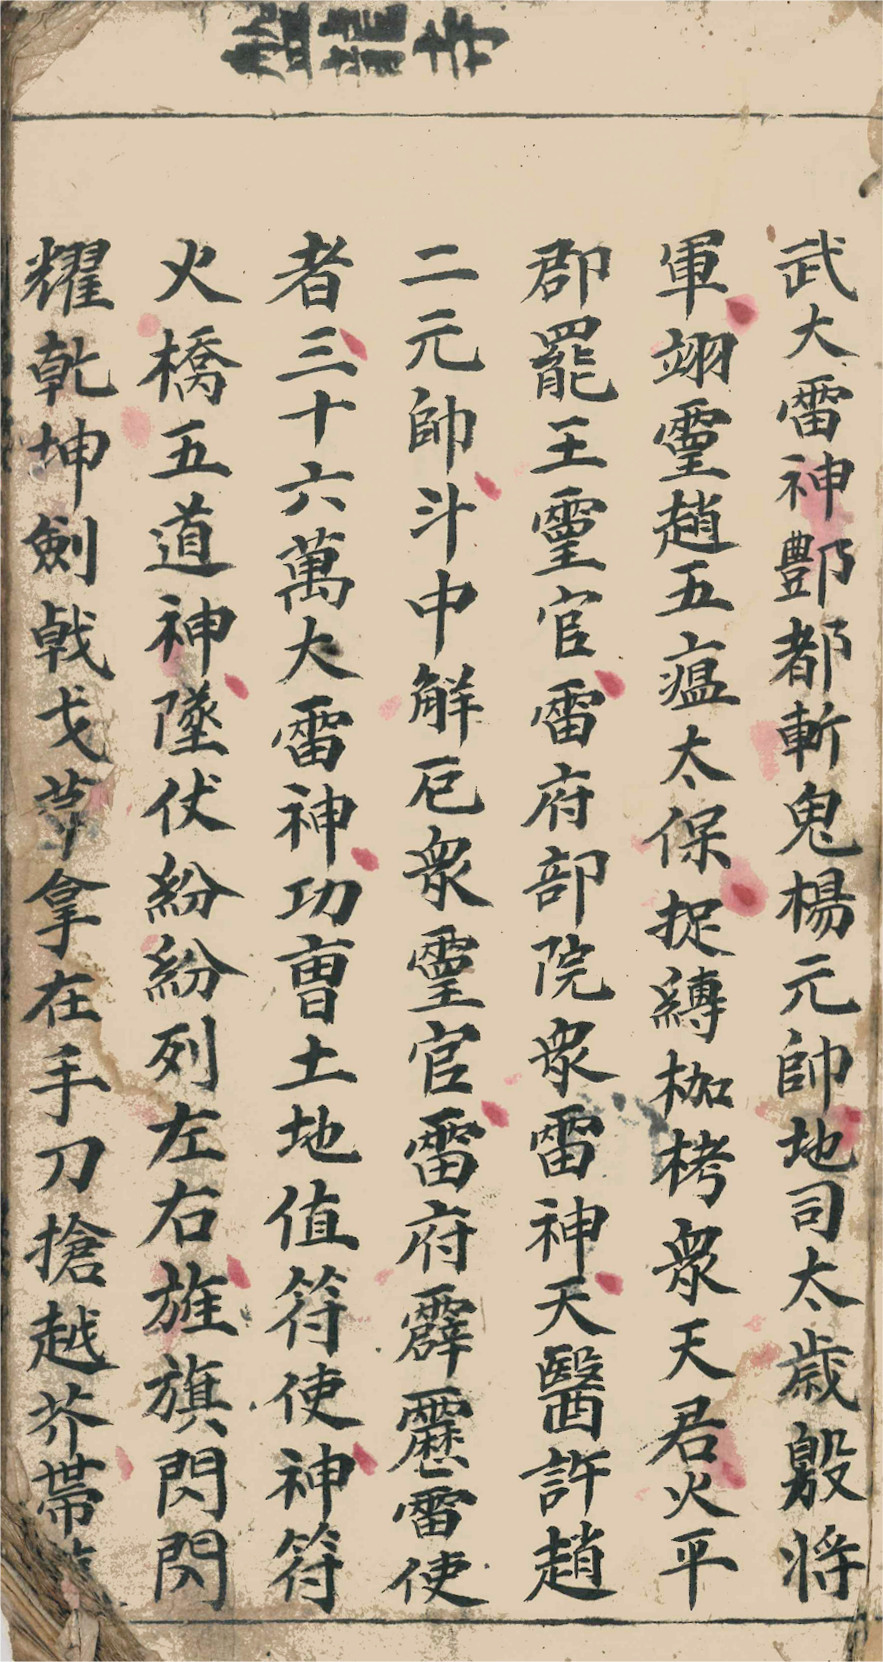 龍寺
武大雷神酆都斬鬼楊元帥地司太歲殷將
軍翊靈趙五瘟太保捉縛枷栲衆天君火平
郡罷王靈官雷府部院衆雷神天醫許趙
二元帥斗中解厄衆靈官雷府霹靂雷使
者三十六萬大雷神功曹土地值符使神符
火橋五道神墜伏紛紛列左右旌旗閃閃
耀乾坤劍戟戈拿在手刀搶越芥帶